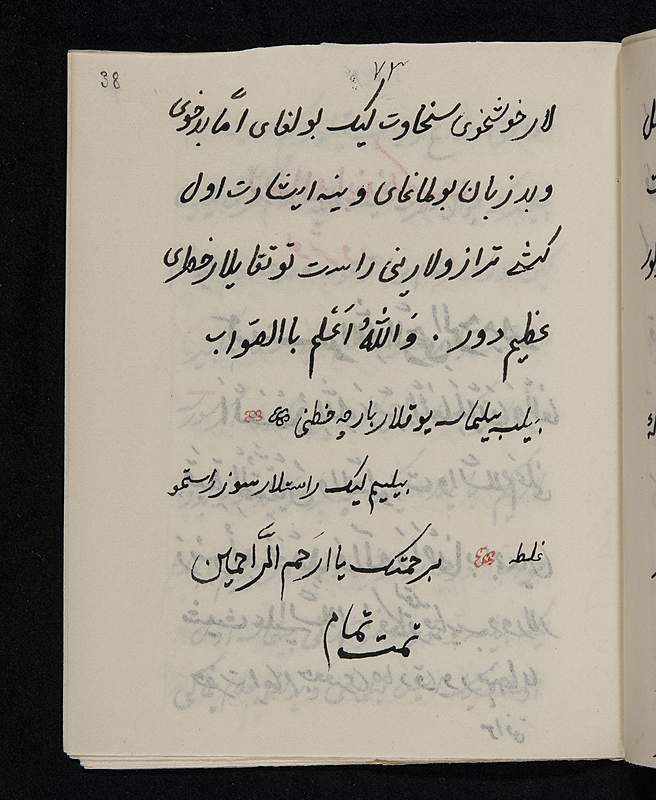 38
۷۳
لار خوشخوی سخاوت لیک بولغای امّا بدخوی
و بد زبان بولماغای وینه ایشارت اول
کشی ترازولارینی راست توتقایلار خطری
عظیم دور . وَاللهُ اَعْلم باالصَواب
بیلب بیلیماس یوقلار بارچه خطنی
بیلیم لیک راستلار سوز راستمو
غلطه برحمتک یا ارَحم الرَّاحمین
تمت تمام